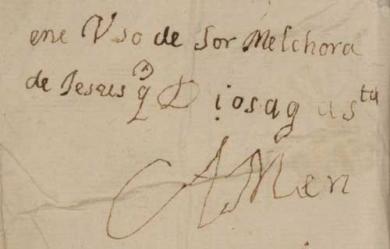 ene Vso de Sor Melchora
de Jesus q Diosag a sta
AMen